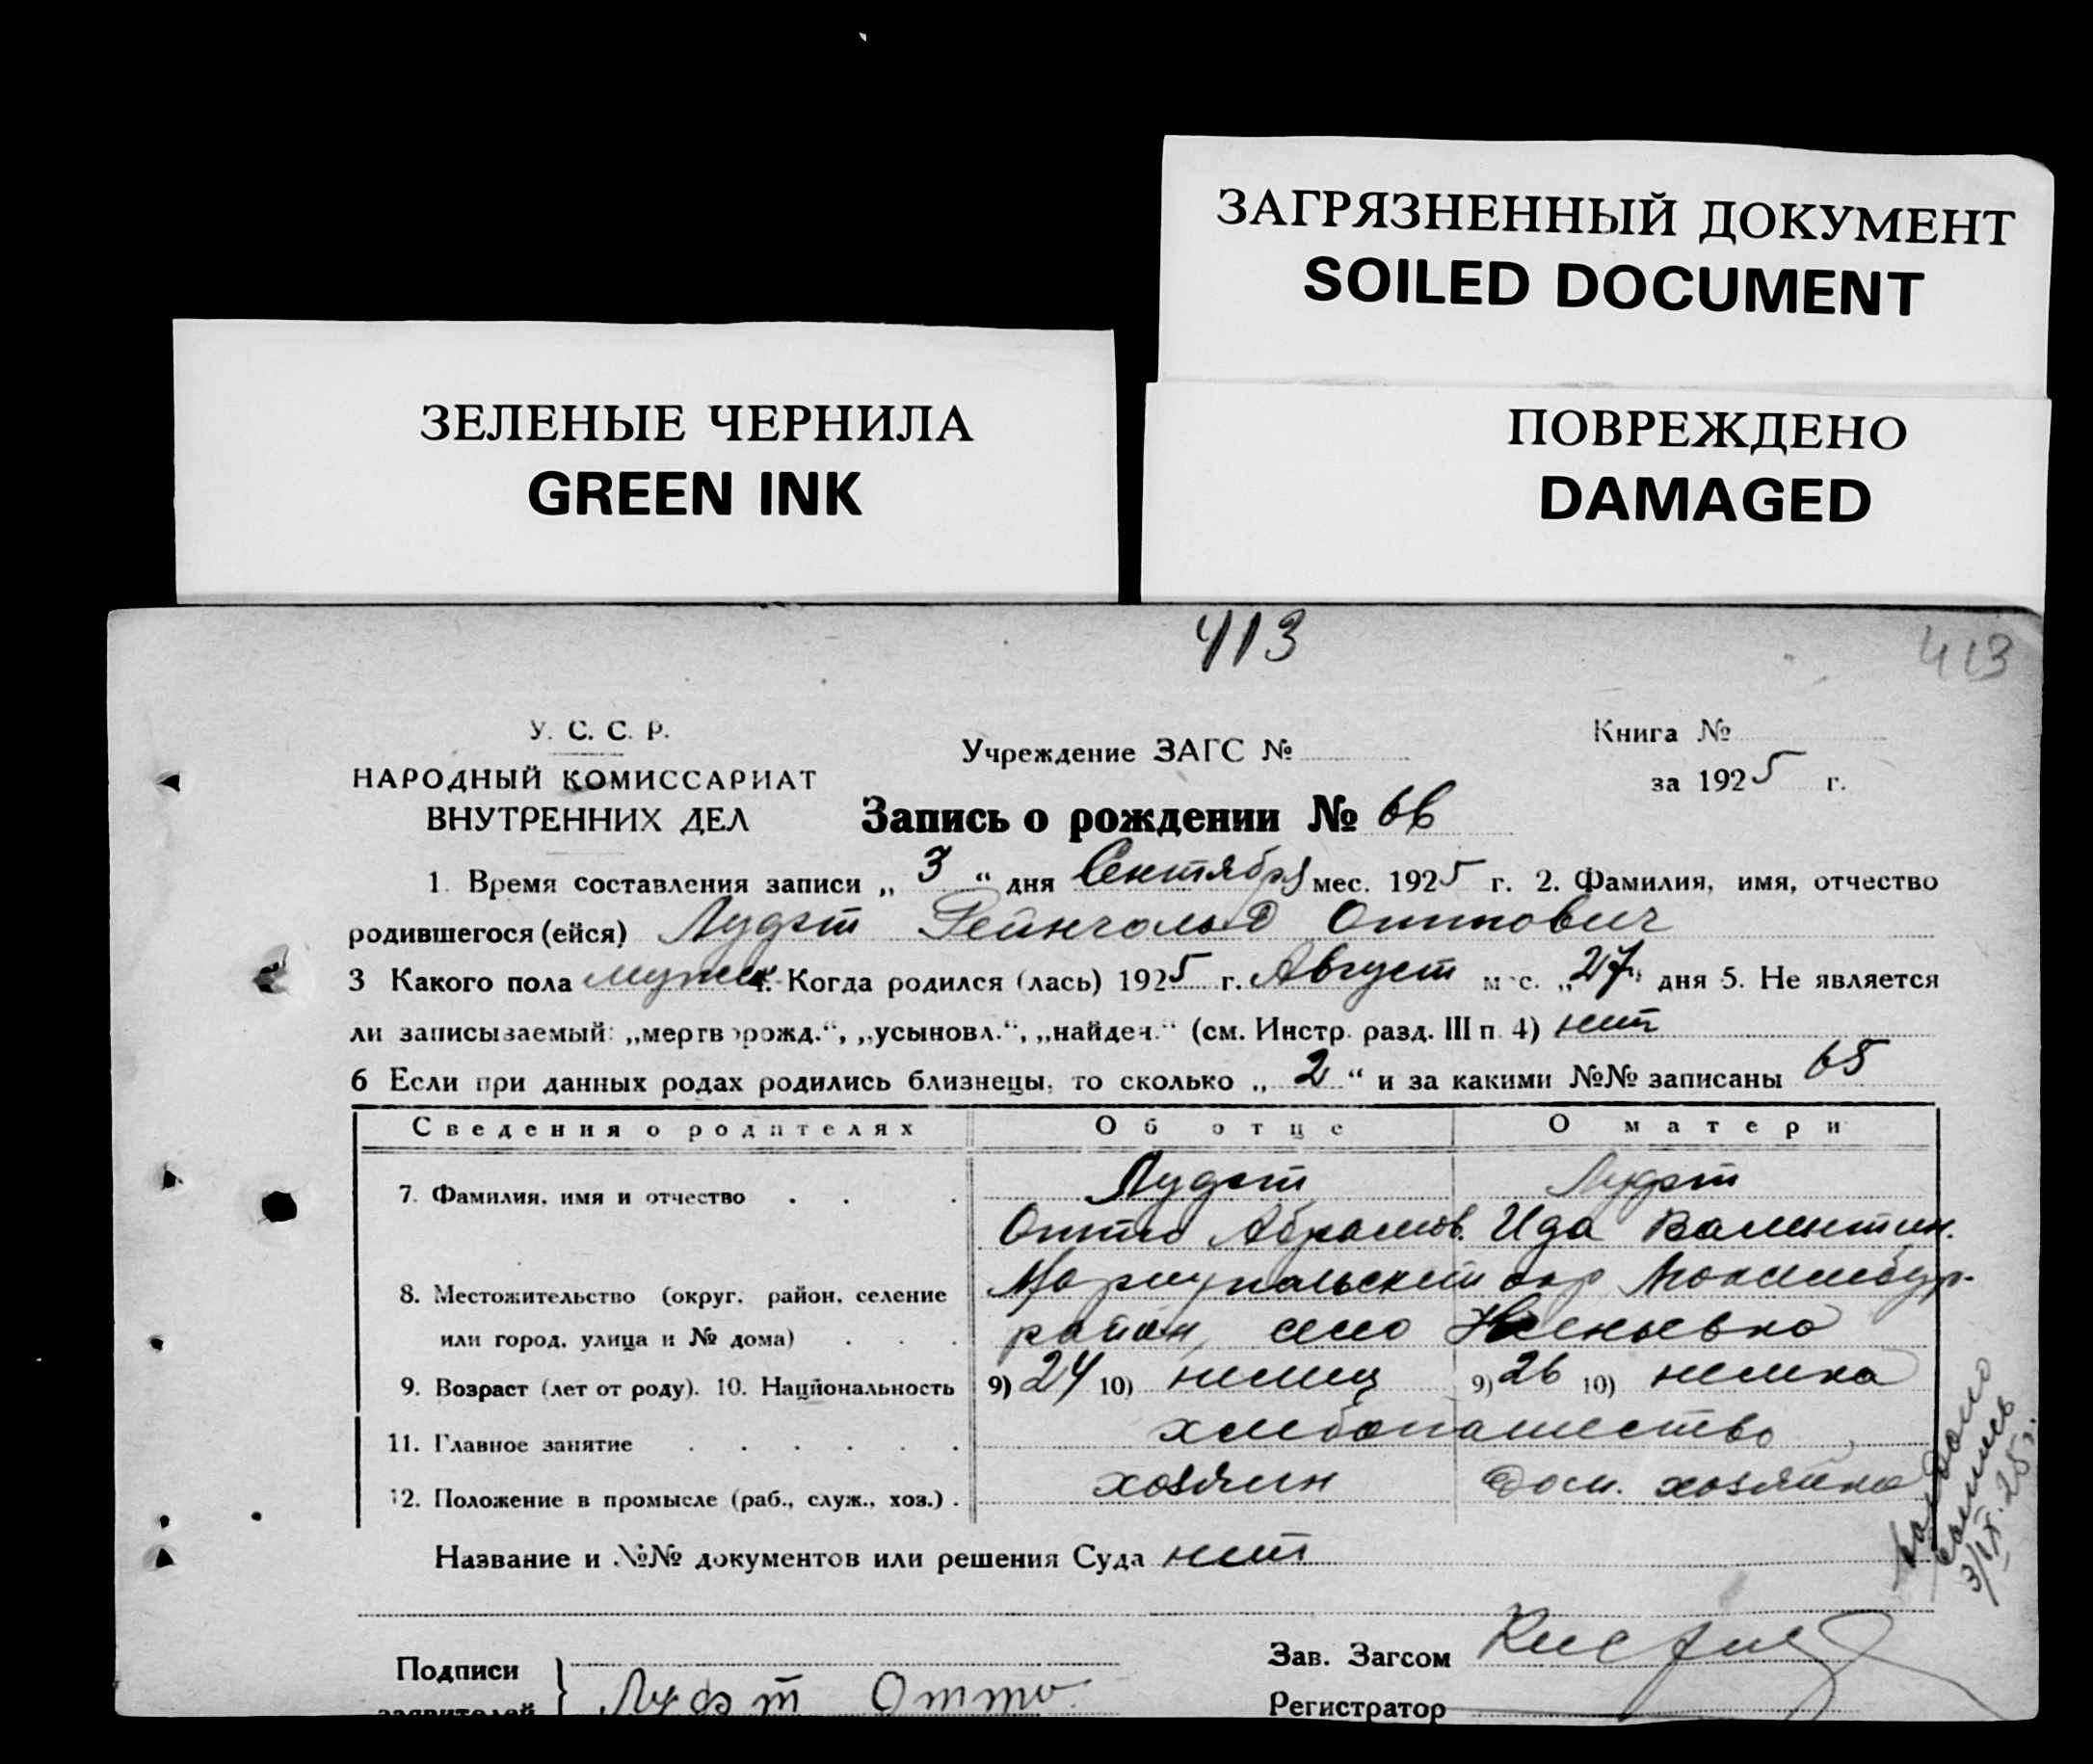 ЗАГРЯЗНЕННЫЙ ДОКУМЕНТ
SOILED DOCUMENT
ЗЕЛЕНЫЕ ЧЕРНИЛА
GREEN INK
ПОВРЕЖДЕНО
DAMAGED
413
413
У. С. С. Р.
НАРОДНЫЙ КОМИССАРИАТ
ВНУТРЕННИХ ДЕЛ
Учреждение ЗАГС №
Книга №
за 1925 г.
Запись о рождении № 66
1. Время составления записи „ 3 “ дня Сентября мес. 1925 г. 2. Фамилия, имя, отчество
родившегося (ейся) Луфт Рейнгольд Оттович
3 Какого пола мужск 4. Когда родился (лась) 1925 г. Август м с. „27„ дня 5. Не является
ли записываемый: „мертворожд.“, „усыновл.“, „найден.“ (см. Инстр. разд. III п. 4) нет
6 Если при данных родах родились близнецы, то сколько „ 2 “ и за какими №№ записаны 65
Сведения о родителях Об отце О матери
7. Фамилия, имя и отчество . . . Луфт Луфт
Отто Абрамов. Ида Валентин.
8. Местожительство (округ, район, селение Мариупольский окр
или город, улица и № дома) . . . район, село
9. Возраст (лет от роду). 10. Национальность 9) 24 10) немец 9) 26 10) немка
11. Главное занятие . . . . . . хлебопашество
12. Положение в промысле (раб., служ., хоз.) . хозяин дом. хозяйка
Название и №№ документов или решения Суда нет
3/IX.25г.
Подписи
заявителей } Луфт Отто
Зав. Загсом
Регистратор